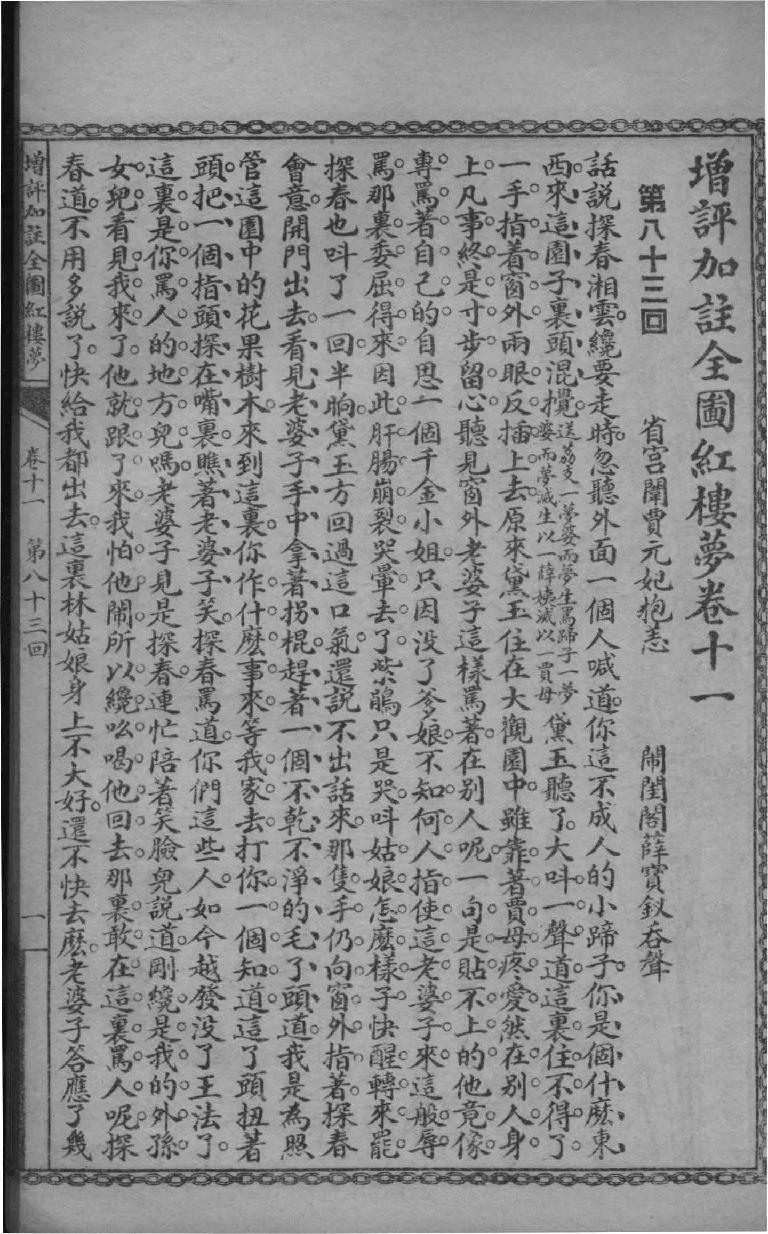 增評加註全圖紅樓夢卷十一
第八十三回　省宮闈賈元妃抱恙　鬧閨閣薛寶釵吞聲
話說探春湘雲纔要走時忽聽外面一個人喊道你這不成人的小蹄子你是個什麽東
西來這園子裏頭混攪送荔支一夢婆而夢生罵蹄子一夢婆而夢滅生以一薛姨滅以一賈母黛玉聽了大叫一聲道這裏住不得了
一手指着窗外兩眼反插上去原來黛玉住在大觀園中雖靠著賈母疼愛然在別人身
上凡事終是寸步留心聽見窗外老婆子這樣罵著在別人呢一句是貼不上的他竟像
專罵著自己的自思一個千金小姐只因沒了爹娘不知何人指使這老婆子來這般辱
罵那裏委屈得來因此肝腸崩裂哭暈去了紫鵑只是哭叫姑娘怎麽樣子快醒轉來罷
探春也叫了一回半晌黛玉方回過這口氣還說不出話來那隻手仍向窗外指著探春
會意開門出去看見老婆子手中拿著拐棍趕著一個不乾不淨的毛丫頭道我是為照
管這園中的花果樹木來到這裏你作什麽事來等我家去打你一個知道這丫頭扭著
頭把一個指頭探在嘴裏瞧著老婆子笑探春罵道你們這些人如今越發沒了王法了
這裏是你罵人的地方兒嗎老婆子見是探春連忙陪著笑臉兒說道剛纔是我的外孫
女兒看見我來了他就跟了來我怕他鬧所以纔吆喝他回去那裏敢在這裏罵人呢探
春道不用多說了快給我都出去這裏林姑娘身上不大好還不快去麽老婆子答應了幾
增評加註全圖紅樓夢　卷十一　第八十三回　一